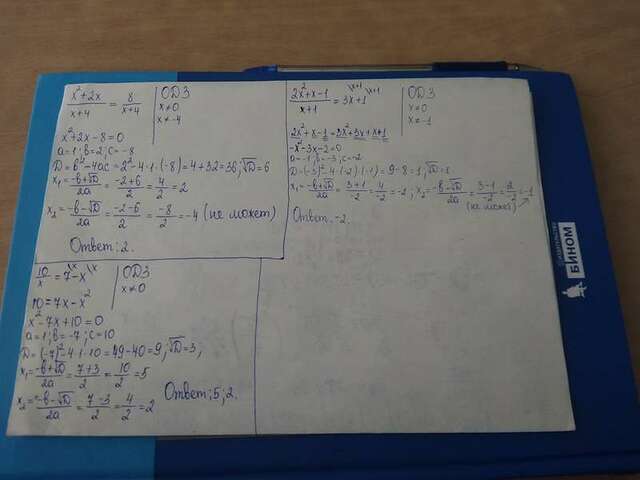 x²+2x/x+4 = 8/x+4 | ОДЗ
x≠0
x≠-4
x²+2x-8=0
a=1; b=2; c=-8
D=b²-4ac=2²-4·1·(-8)=4+32=36, √D=6
x₁=-b+√D/2a=-2+6/2=4/2=2
x₂=-b-√D/2a=-2-6/2=-8/2=-4 (не может)
Ответ: 2.
2x²+x-1/x+1=3x+1 | ОДЗ
x≠0
x≠-1
2x²+x-1=3x²+3x+x+1
-x²-3x-2=0
a=-1; b=-3; c=-2
D=(-3)²-4·(-2)·(-1)=9-8=1, √D=1
x₁=-b+√D/2a=3+1/-2=4/-2=-2; x₂=-b-√D/2a=3-1/-2=2/-2=-1
(не может)
Ответ: -2.
10/x=7-x | ОДЗ
x≠0
10=7x-x²
x²-7x+10=0
a=1; b=-7; c=10
D=(-7)²-4·1·10=49-40=9, √D=3,
x₁=-b+√D/2a=7+3/2=10/2=5
x₂=-b-√D/2a=7-3/2=4/2=2
Ответ: 5; 2.
издательство
БИНОМ